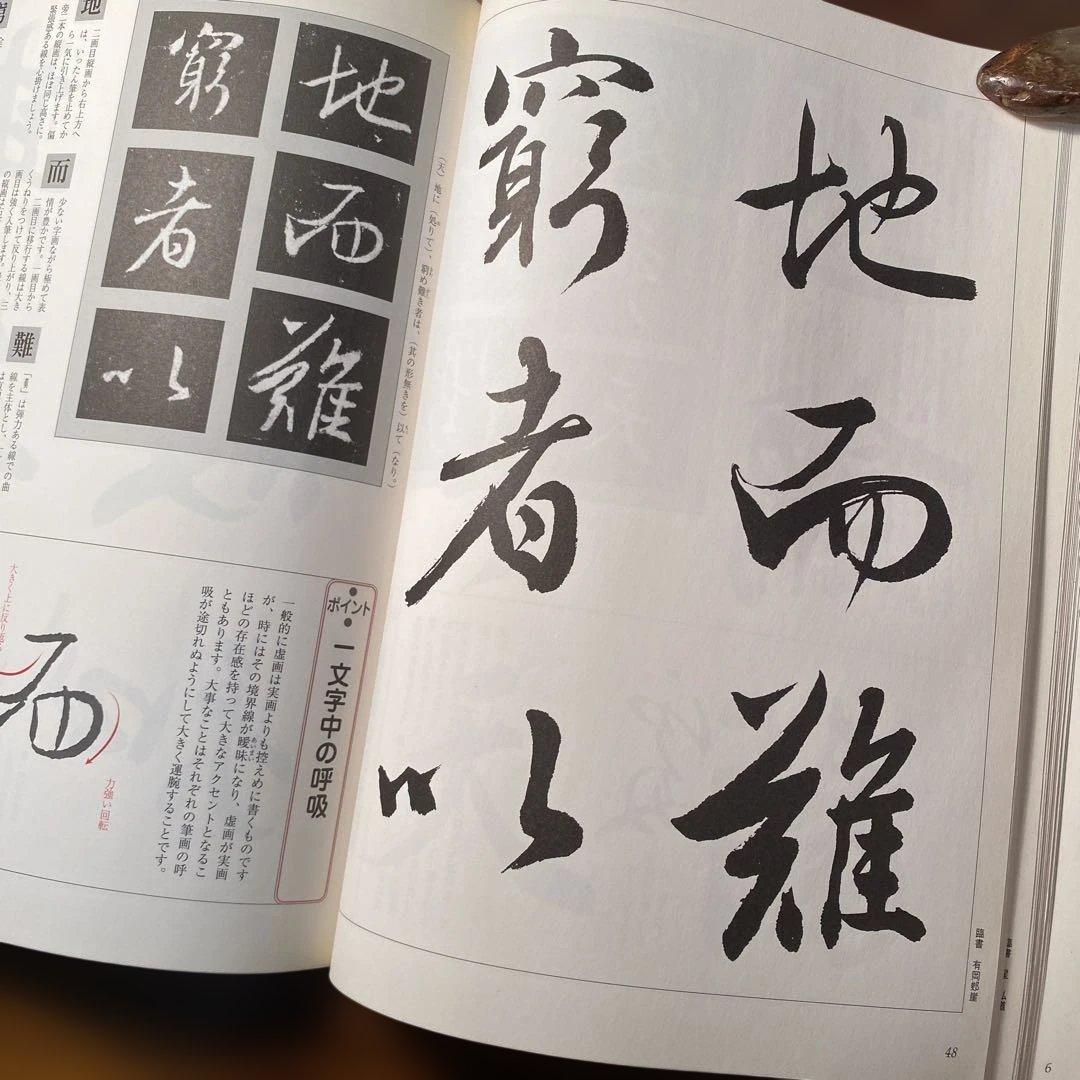 地而難
窮者以
臨書 有岡䣝崖
48
6
(天)地に(処りて)、窮め難き者は、(其の形無きを)以て(なり。)
地而難
窮者以
地
二画目縦画から右上方へ
は、いったん筆を止めてか
ら一気に引き上げます。偏
旁二本の縦画は、ほぼ同じ高さに。
緊張感ある線を心掛けましょう。
而
少ない字画ながら極めて表
情が豊かです。一画目から
二画目に移行する線は大き
くうねりをつけて反り上がり、三
画目は強く入筆します。
難
は弾力ある線での曲
線を主体とし、
●ポイント●
一文字中の呼吸
一般的に虚画は実画よりも控えめに書くものです
が、時にはその境界線が曖昧になり、虚画が実画
ほどの存在感を持って大きなアクセントとなるこ
ともあります。大事なことはそれぞれの筆画の呼
吸が途切れぬようにして大きく運腕することです。
大きく上に反り
而
力強い回転